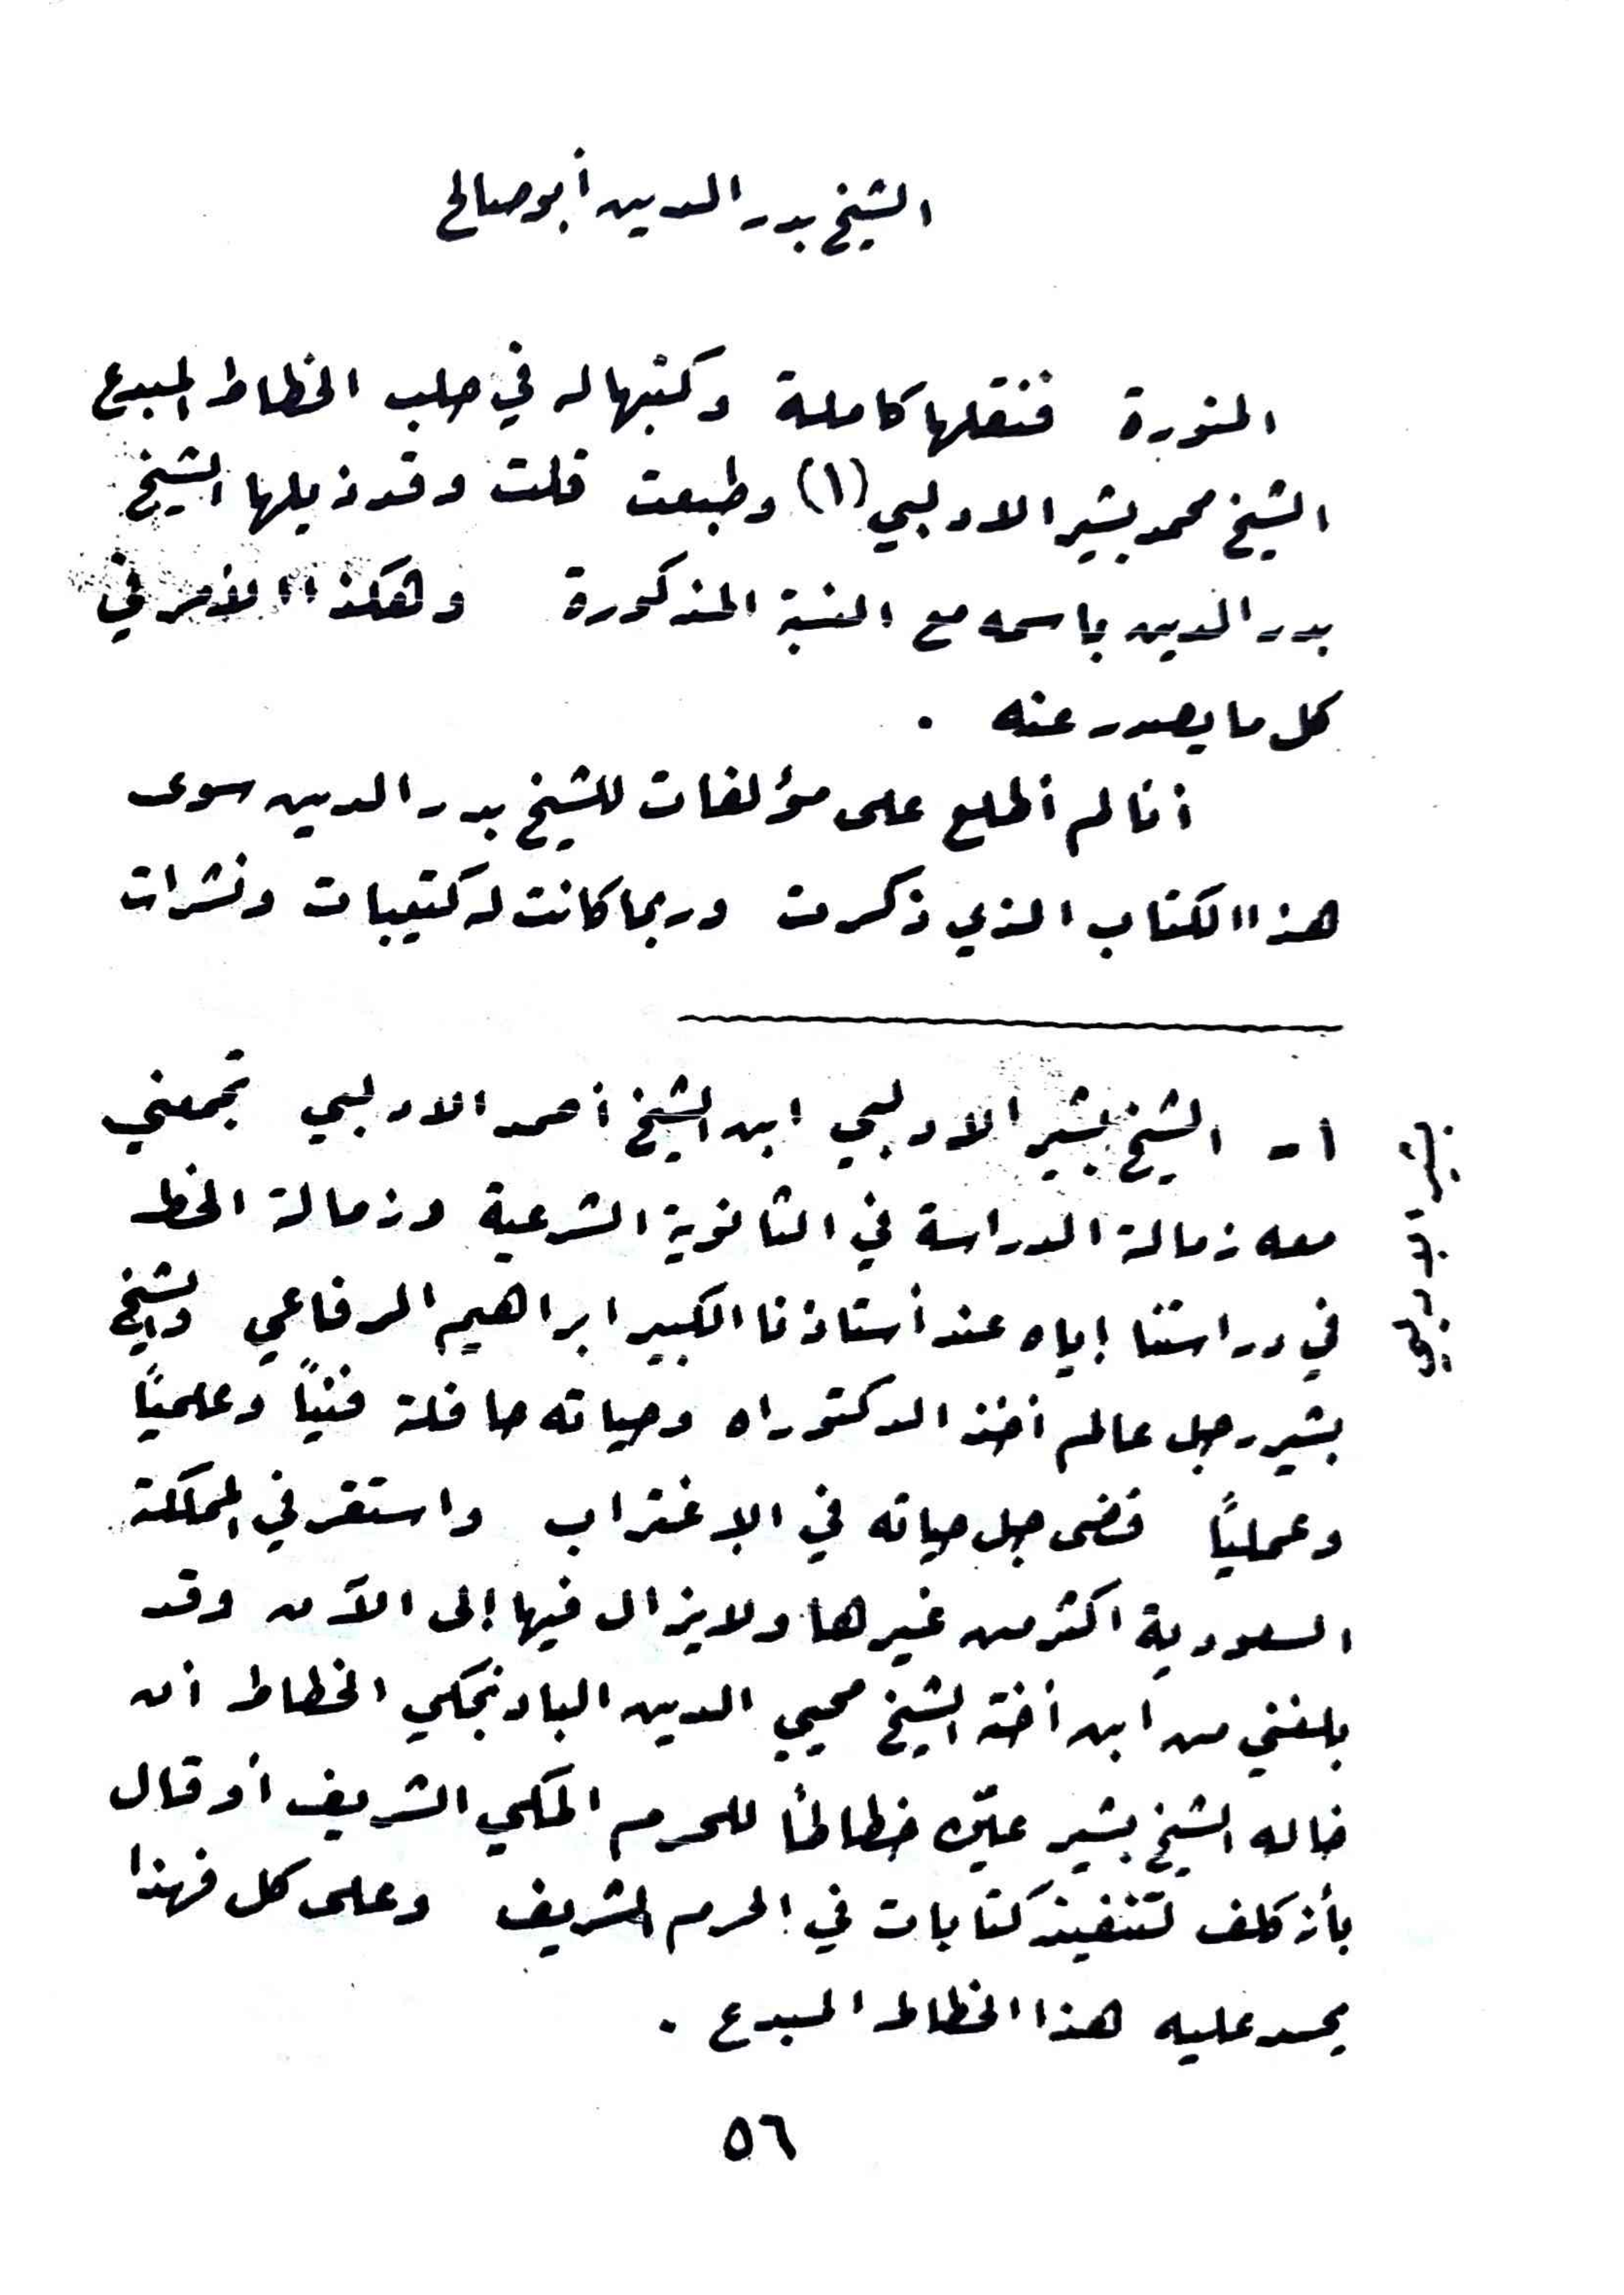 الشيخ بدر الدين أبو صالح
المنورة فنقلها كاملة وكتبها له في حلب الخطاط المبدع
الشيخ محمد بشير الادلبي (١) وطبعت قلت وقد ذيلها الشيخ
بدر الدين باسمه مع النسبة المذكورة وهكذا الأمر في
كل ما يصدر عنه .
أنا لم أطلع على مؤلفات للشيخ بدر الدين سوى
هذا الكتاب الذي ذكرت وربما كانت له كتيبات ونشرات
١- الشيخ بشير الادلبي ابن الشيخ أحمد الادلبي تجمعني
معه زمالة الدراسة في الثانوية الشرعية وزمالة الخط
في دراستنا إياه عند أستاذنا الكبير ابراهيم الرفاعي والشيخ
بشير رجل عالم أخذ الدكتوراه وحياته حافلة فنياً وعلمياً
وعملياً قضى جل حياته في الاغتراب واستقر في المملكة
السعودية اكثر من غيرها ولايزال فيها إلى الآن وقد
بلغني من ابن أخته الشيخ محيي الدين البادنجكي الخطاط أن
خاله الشيخ بشير عيّن خطاطاً للحرم المكي الشريف أو قال
بأنه كلف لتنفيذ كتابات في الحرم الشريف وعلى كل فهذا
يحسد عليه هذا الخطاط المبدع .
٥٦